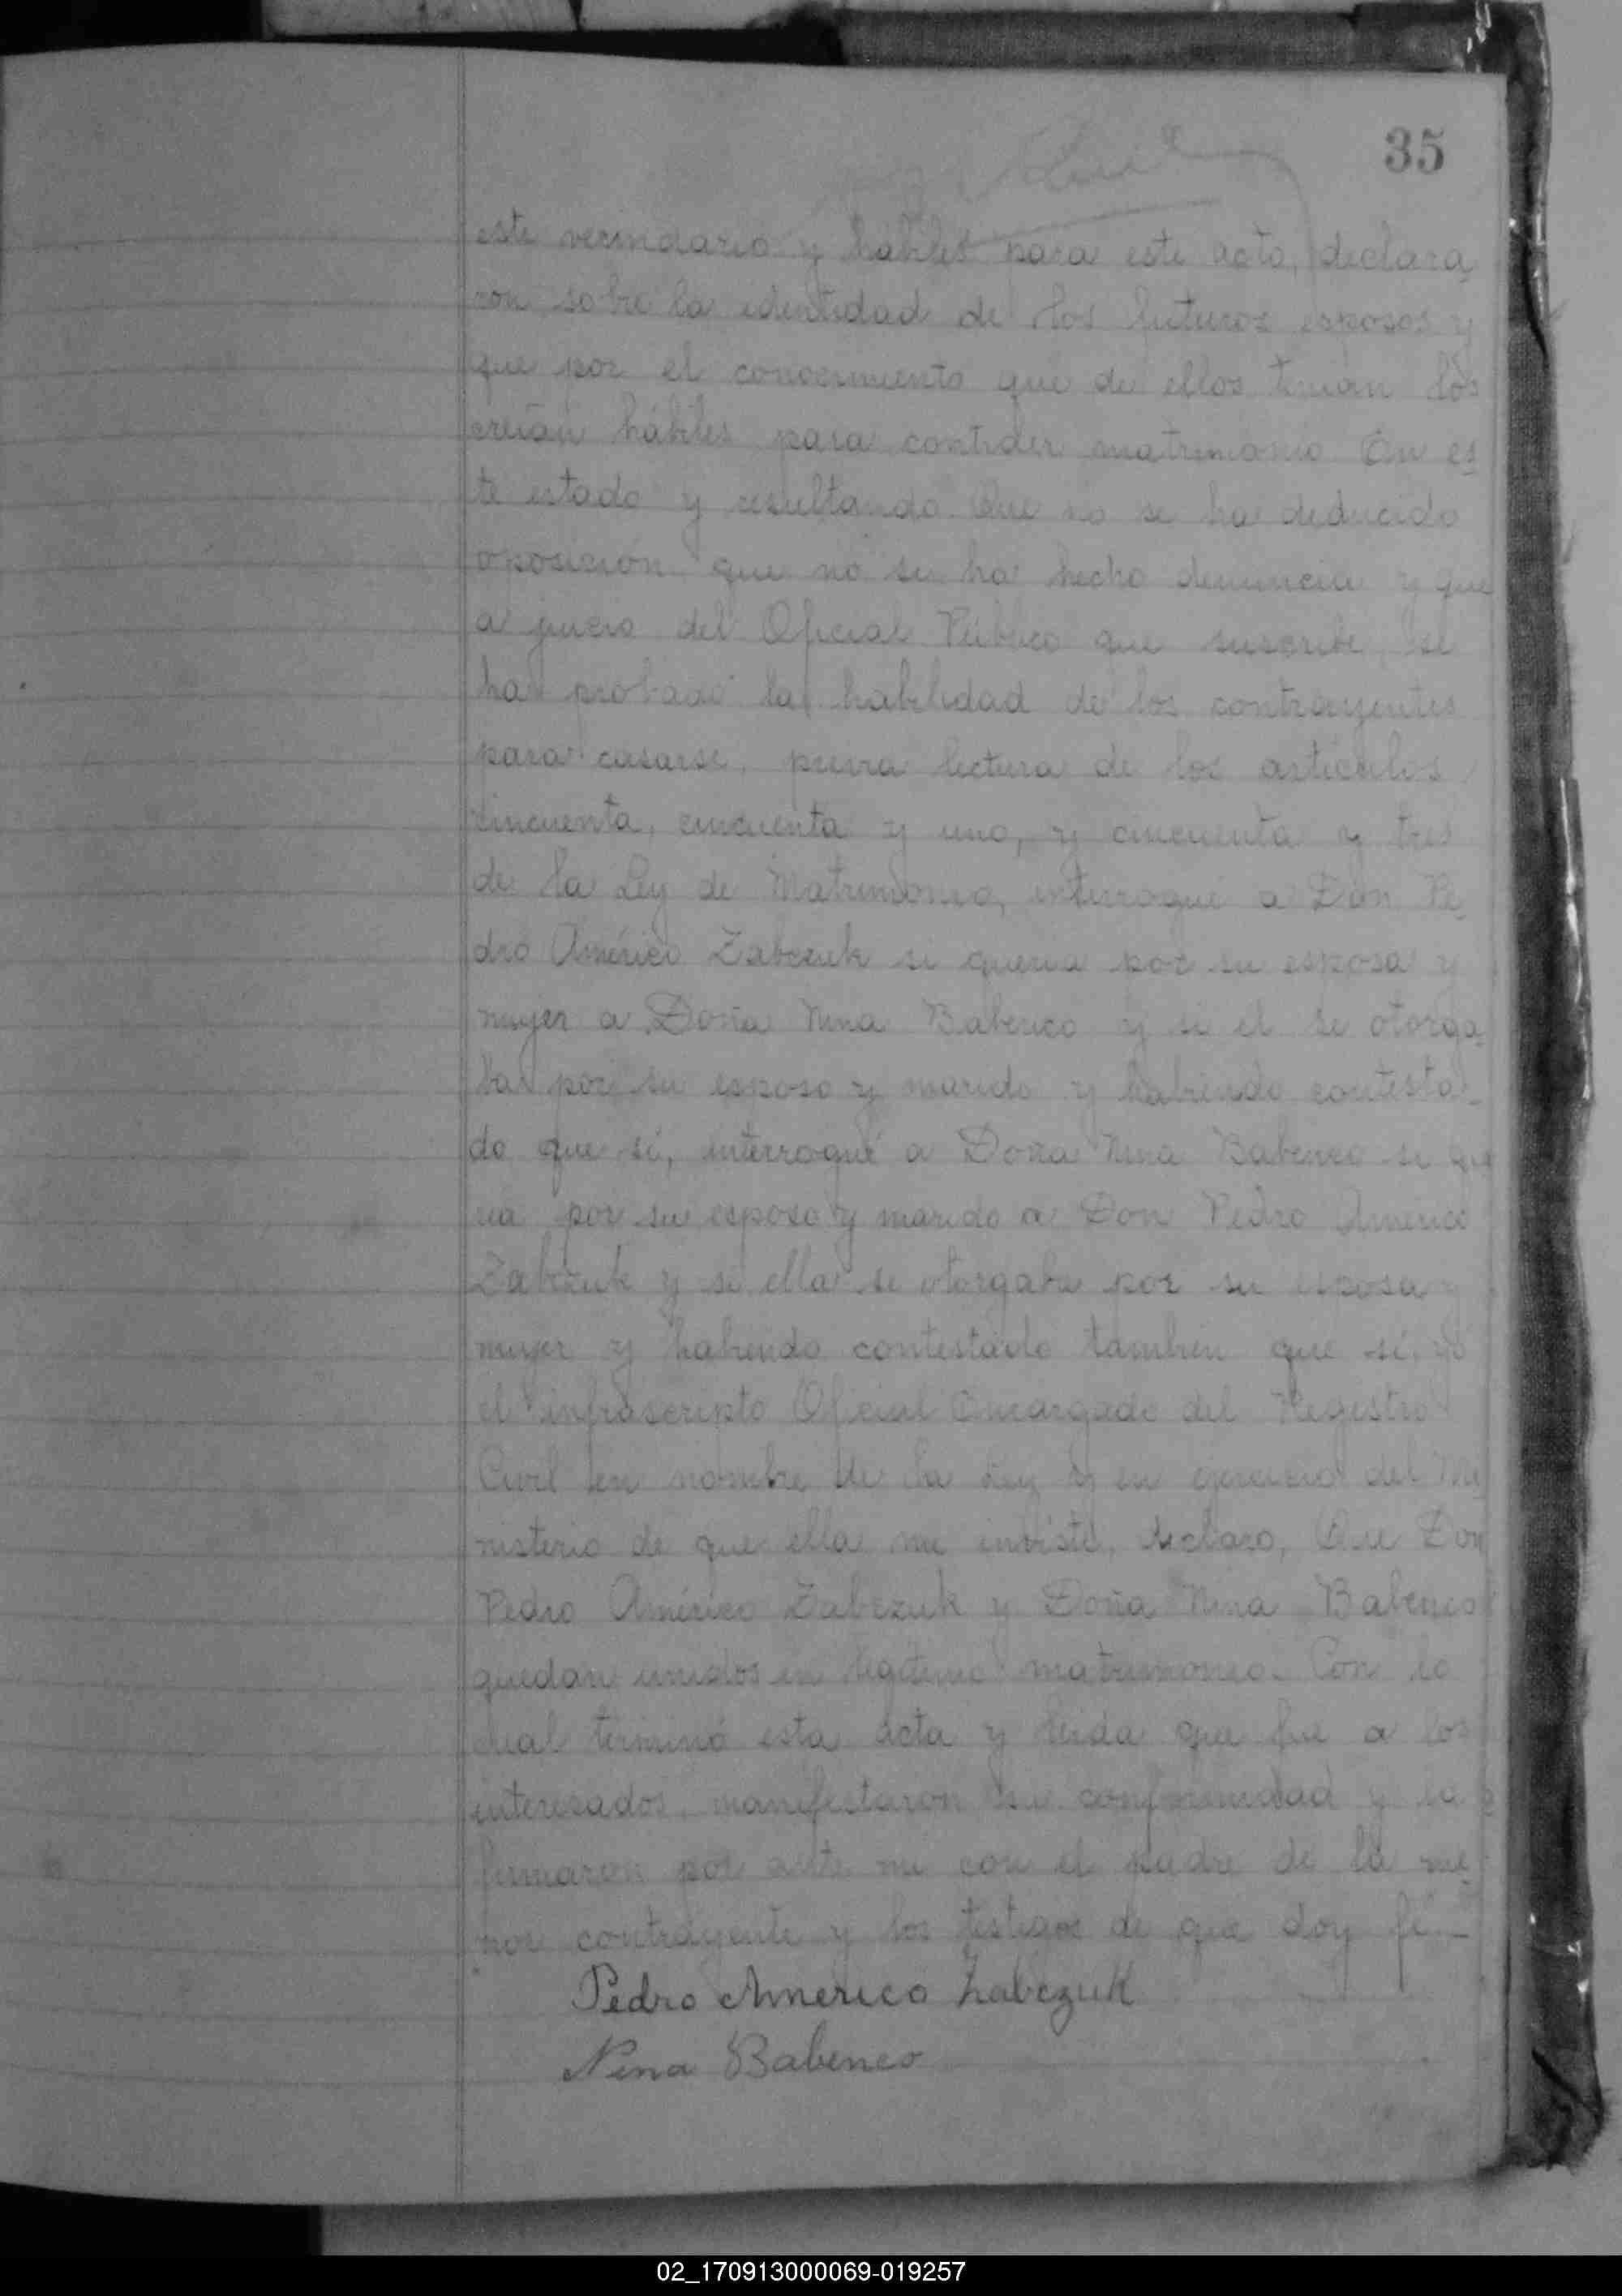 35
este vecindario y hábiles para este acto, declara
ron sobre la identidad de los futuros esposos y
que por el conocimiento que de ellos tenian los
creian hábiles para contraer matrimonio. En es
te estado y resultando: Que no se ha deducido
oposición, que no se ha hecho denuncia y que
a juicio del Oficial Público que suscribe, se
ha probado la habilidad de los contrayentes
para casarse, previa lectura de los articulos
cincuenta, cincuenta y uno, y cincuenta y tres
de la Ley de Matrimonio, interrogué a Don Pe
dro Américo Zabczuk si queria por su esposa y
mujer a Doña Nina Babenco y si el se otorga
ba por su esposo y marido y habiendo contesta-
do que si, interrogué a Doña Nina Babenco si que
ria por su esposo y marido a Don Pedro Americo
Zabczuk y si ella se otorgaba por su esposa y
mujer y habiendo contestado tambien que si, yo
el infrascripto Oficial Encargado del Registro
Civil en nombre de la Ley y en ejercicio del Mi
nisterio de que ella me inviste, declaro, Que Don
Pedro Américo Zabczuk y Doña Nina Babenco
quedan unidos en legitimo matrimonio. Con lo
cual terminó esta acta y leida que fue a los
interesados, manifestaron su conformidad y la
firmaron por ante mi con el padre de la me
nor contrayente y los testigos de que doy fé -
Pedro Americo Zabczuk
Nina Babenco
02_170913000069-019257